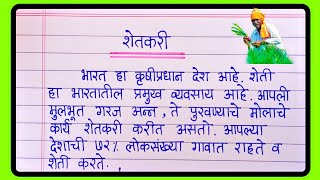 शेतकरी
भारत हा कृषीप्रधान देश आहे. शेती
हा भारतातील प्रमुख व्यवसाय आहे. आपली
मुलभूत गरज अन्न, ते पुरवण्याचे मोलाचे
कार्य शेतकरी करीत असतो. आपल्या
देशाची ७२% लोकसंख्या गावात राहते व
शेती करते.